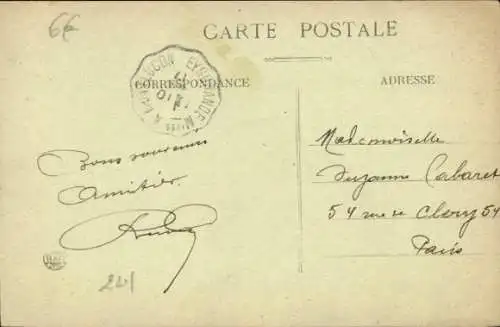 6€
CARTE POSTALE
CORRESPONDANCE
ADRESSE
Bons souvenirs
Amitiés
Mademoiselle
Suzanne Cabaret
54 rue de Clery 54
Paris
241